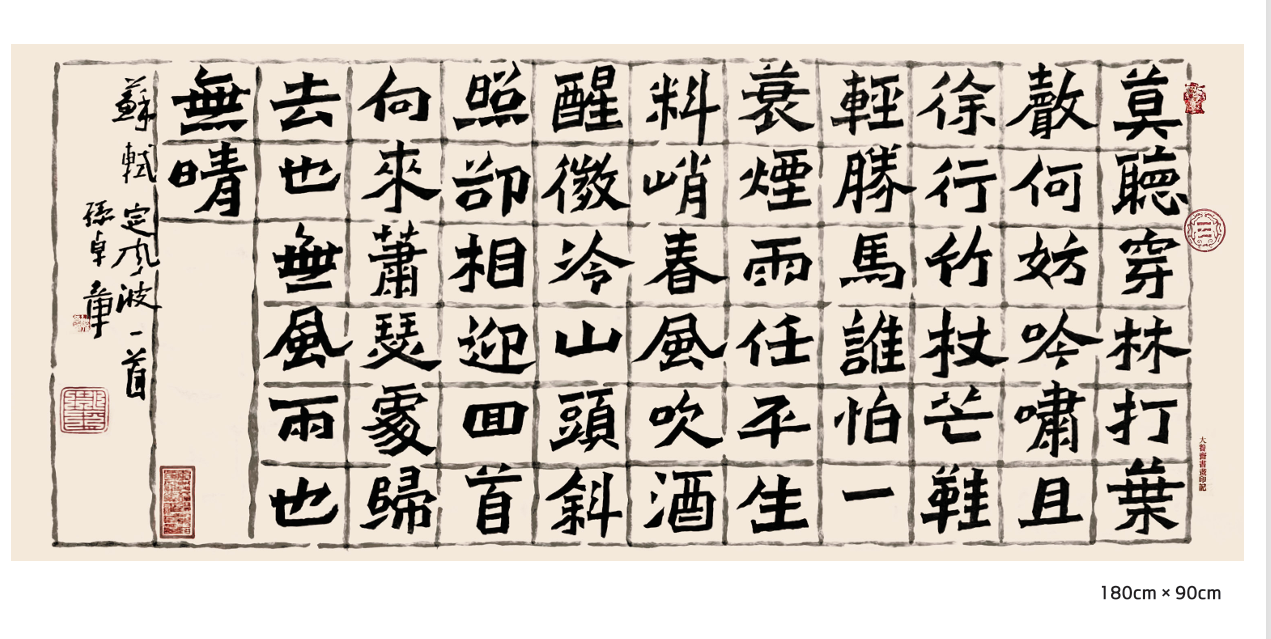 莫聽穿林打葉
聲何妨吟嘯且
徐行竹杖芒鞋
輕勝馬誰怕一
蓑煙雨任平生
料峭春風吹酒
醒微冷山頭斜
照卻相迎回首
向來蕭瑟處歸
去也無風雨也
無晴
蘇軾定風波一首
孫卓章
大醫齋書畫印記
180cm × 90cm